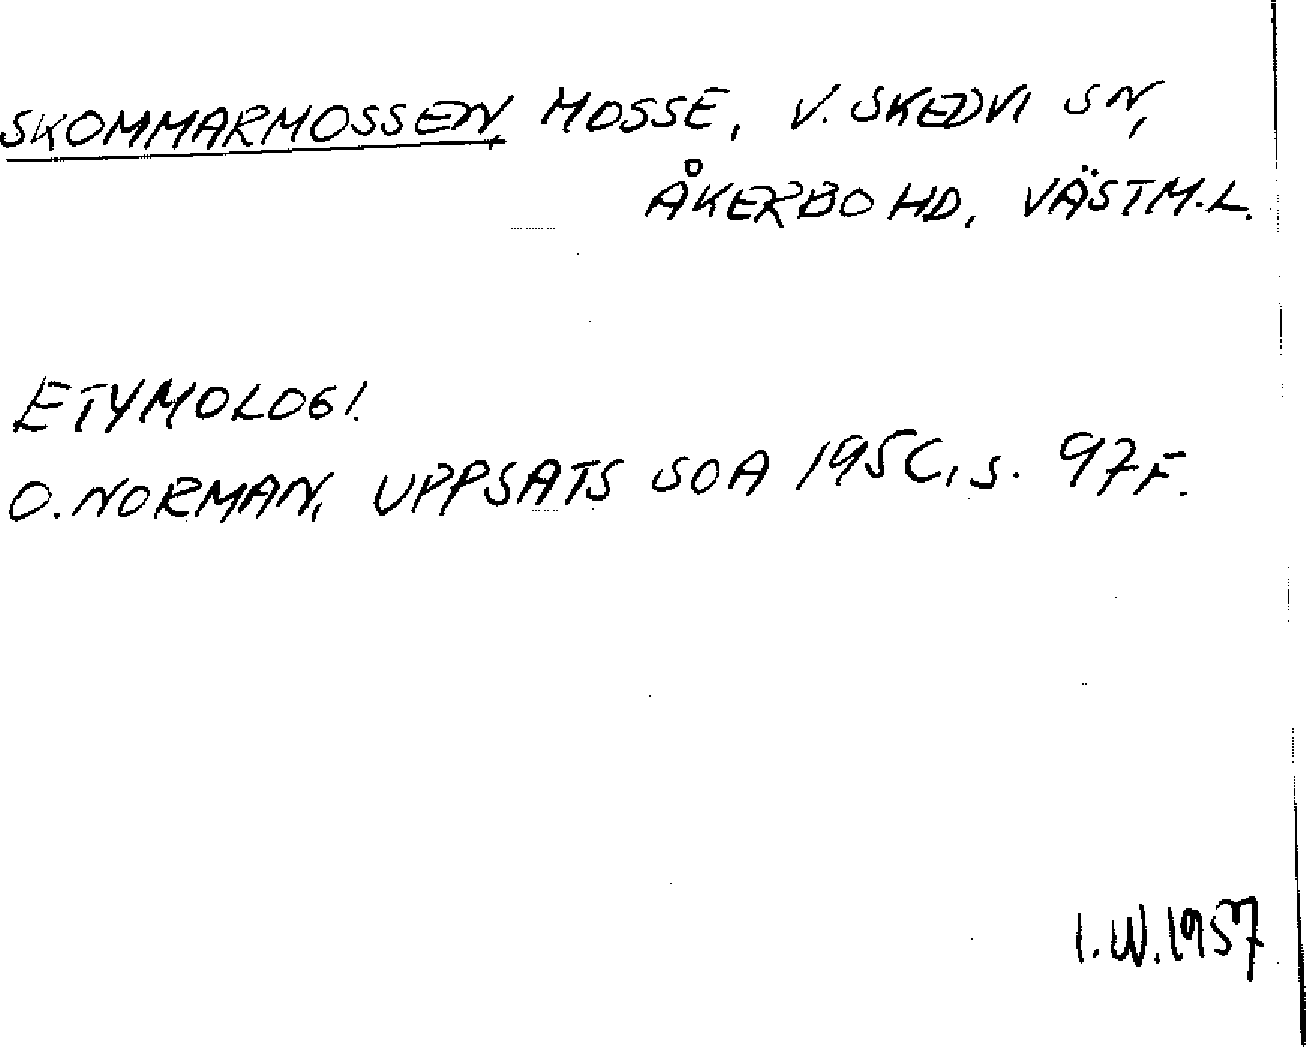 SKOMMARMOSSEN, MOSSE, V. SKEDVI SN,
ÅKERBO HD, VÄSTM.L.
ETYMOLOGI.
O. NORMAN, UPPSATS SOA 1950, S. 97 F.
I.W.1957